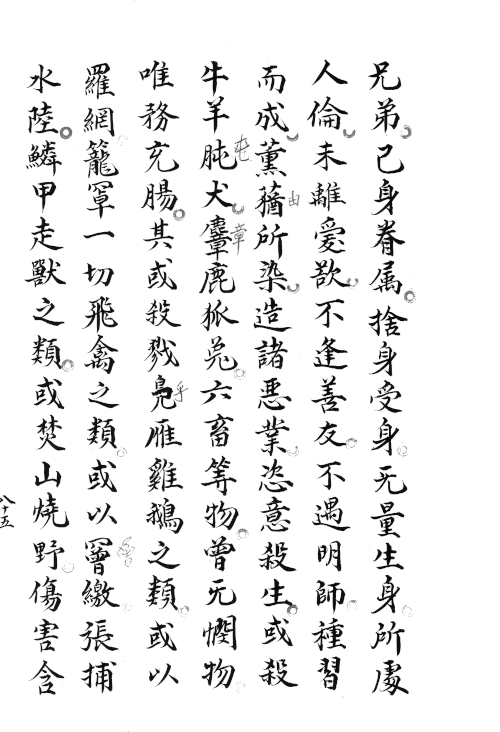 兄弟己身眷属捨身受身无量生身所處
人倫未離愛欲不逢善友不遇明師種習
而成薰蕕所染造諸惡業恣意殺生或殺
牛羊肫犬麞鹿狐兎六畜等物曽无憫物
唯務充腸其或殺戮鳧雁雞鵝之類或以
羅網籠罩一切飛禽之類或以罾繳張捕
水陸鱗甲走獸之類或焚山燒野傷害含
八十五